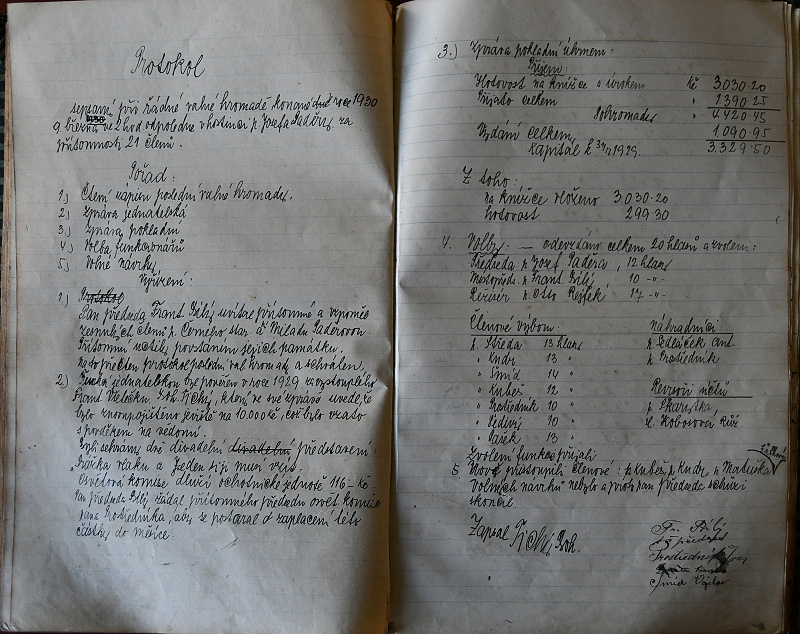 Protokol
sepsaný při řádné valné hromadě konané dne roce 1930
9. března ve 2 hod odpoledne v hostinci p. Josefa Paděry, za
přítomnosti 21 členů.
Pořad:
1.) Čtení zápisu poslední valné hromady.
2.) Zpráva jednatelská
3.) Zpráva pokladní
4.) Volba funkcionářů
5.) Volné návrhy
Vyřízení:
1.) Protokol
Pan předseda Frant. Bílý uvítal přítomné a vzpomněl
zesnulých členů p. Černého star. a Miladu Paděrovou.
Přítomní uctili povstáním jejich památku.
Na to přečten protokol poslední val. hromady a schválen.
2.) jednatelskou byl pověřen v roce 1929 za vystouplého
Frant. Boh. Tichý, který ve své zprávě uvedl, že
bylo znovu pojištěno jeviště na 10.000 kč, což bylo vzato
s povděkem na vědomí.
Byli sehrány dvě divadelní divadelní představení:
Srážka vlaku a Jeden z jí musí vzít.
Osvětová komise dluží ochotnické jednotě 116 - kč.
Pan předseda Bílý, žádal přítomného předsedu osvět. komise
pana Prostředníka, aby se postaral o zaplacení této
částky do měsíce.
3.) Zpráva pokladní úhrnem:
Příjem
Hotovost na knížce s úrokem kč 3030.20
Přijato celkem " 1390.25
Dohromady " 4420.45
Vydání celkem, 1.090.95
Kapitál k 31/12 1929. 3.329.50
Z toho:
na knížce vloženo 3.030.20
hotovost 299.30
4. Volby: — odevzdáno celkem 20 hlasů a zvoleni:
Předseda p. Josef Paděra, 12 hlasů
Místopředs. p. Frant. Bílý 10 -"-
Režisér p. Oto 17 -"-
Členové výboru: náhradníci:
p. Středa 13 hlasů p. Sedláček ant.
" Kudr 13 " p. Prostředník
" Šmíd 14 "
" Kubeš 12 " Revisoři účtů
" Prostředník 10 " p. Škarytka,
" 10 " sl. Kobosova Růž.
" Pašek 13 "
Zvolení funkce přijali
5. Nově přistoupili členové: p. Kubeš, p. Kudr, p. Matuška
Volných návrhů nebylo a proto pan předseda schůzi
skončil.
Zapsal Tichý Boh.
Fr. Bílý
předseda
Prostředník
Šmíd Václav